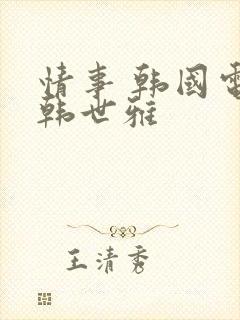 情事 韩國電
韩世雅
王清秀